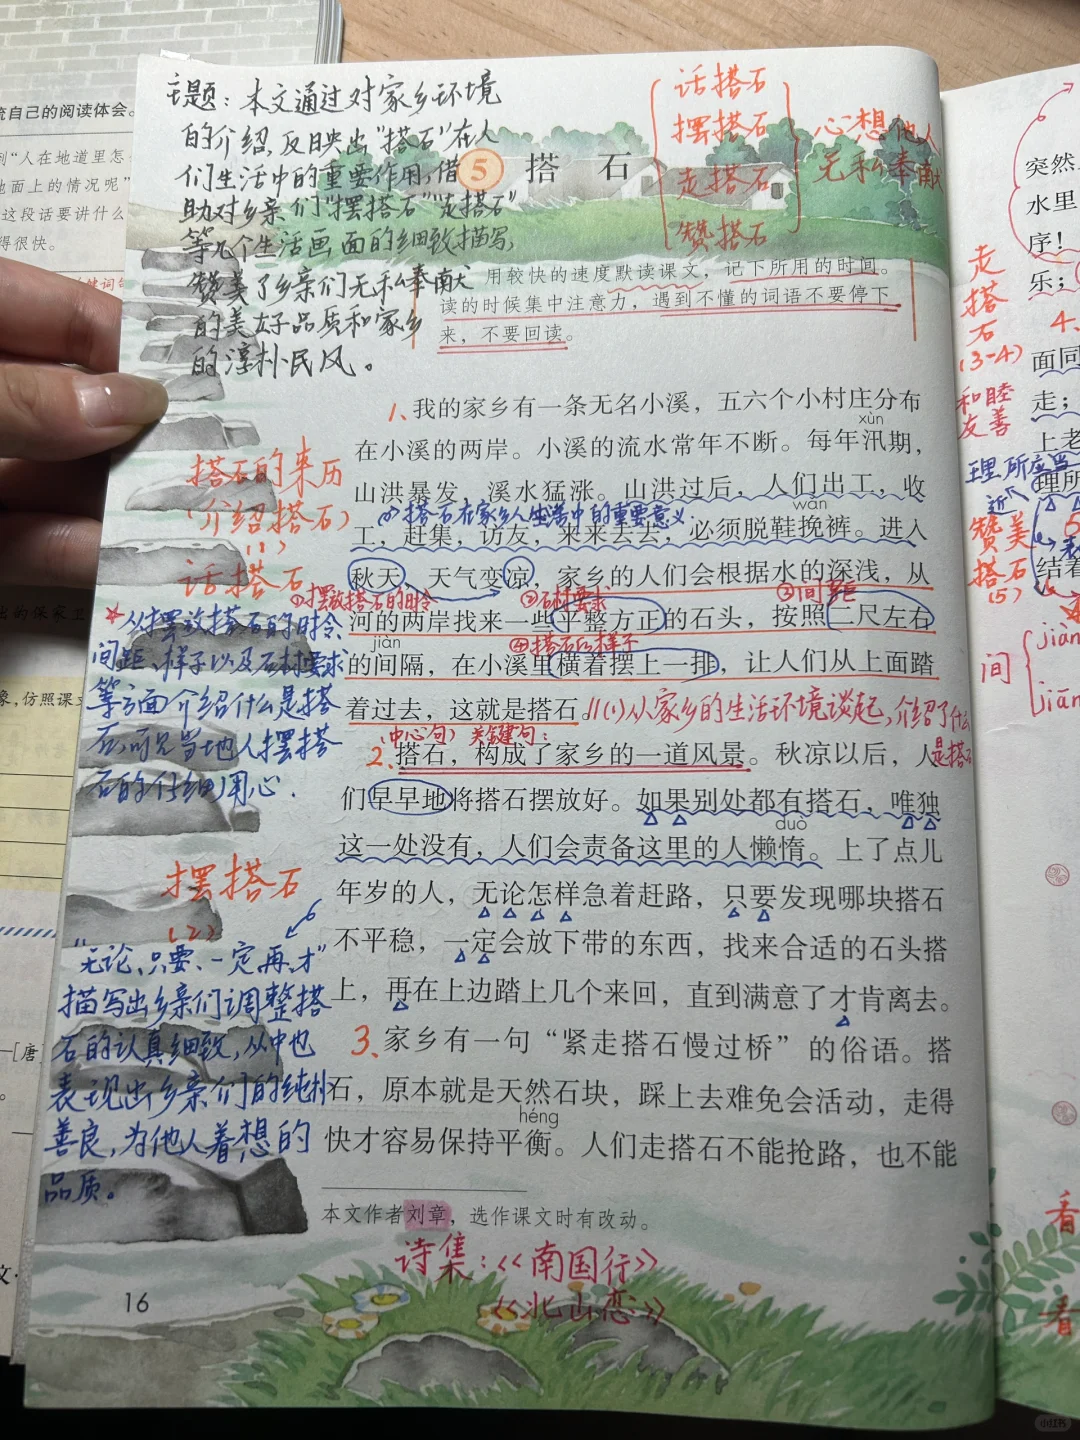 主题：本文通过对家乡环境
的介绍,反映出“搭石”在人
们生活中的重要作用,借
助对乡亲们“摆搭石”“走搭石”
等几个生活画面的细致描写,
赞美了乡亲们无私奉献
的美好品质和家乡
的淳朴民风。
话搭石
摆搭石
走搭石
赞搭石
心想他人
无私奉献
5 搭石
用较快的速度默读课文，记下所用的时间。
读的时候集中注意力，遇到不懂的词语不要停下
来，不要回读。
1、我的家乡有一条无名小溪，五六个小村庄分布
xùn
在小溪的两岸。小溪的流水常年不断。每年汛期，
山洪暴发，溪水猛涨。山洪过后，人们出工，收
搭石在家乡人生活中的重要意义
wǎn
工，赶集，访友，来来去去，必须脱鞋挽裤。进入
秋天，天气变凉，家乡的人们会根据水的深浅，从
①摆放搭石的时令
②石材要求
③间距
河的两岸找来一些平整方正的石头，按照二尺左右
jiàn
④搭石的样子
的间隔，在小溪里横着摆上一排，让人们从上面踏
着过去，这就是搭石。
(1)从家乡的生活环境谈起,介绍了什么
是搭石
(中心句)关键句:
2、搭石，构成了家乡的一道风景。秋凉以后，人
们早早地将搭石摆放好。如果别处都有搭石，唯独
duò
这一处没有，人们会责备这里的人懒惰。上了点儿
年岁的人，无论怎样急着赶路，只要发现哪块搭石
不平稳，一定会放下带的东西，找来合适的石头搭
上，再在上边踏上几个来回，直到满意了才肯离去。
3、家乡有一句“紧走搭石慢过桥”的俗语。搭
石，原本就是天然石块，踩上去难免会活动，走得
héng
快才容易保持平衡。人们走搭石不能抢路，也不能
本文作者刘章，选作课文时有改动。
诗集：《南国行》
《北山恋》
16
搭石的来历
(介绍搭石)
(1)
话搭石
从摆放搭石的时令
间距、样子以及石材要求
等方面介绍什么是搭
石,可见当地人摆搭
石的仔细用心.
摆搭石
(2)
“无论、只要、一定、再、才”
描写出乡亲们调整搭
石的认真细致,从中也
表现出乡亲们的纯朴
善良,为他人着想的
品质。
流自己的阅读体会。
到“人在地道里怎
地面上的情况呢”
这段话要讲什么
得很快。
像,仿照课文
[唐]
突然
水里
序！
乐；
走
搭
石
(3-4)
和睦
友善
4、
面同
走；
上老
理所应当
理所
近
赞美
搭石
(5)
结着
间
jiàn
jiān
看
看
小红书